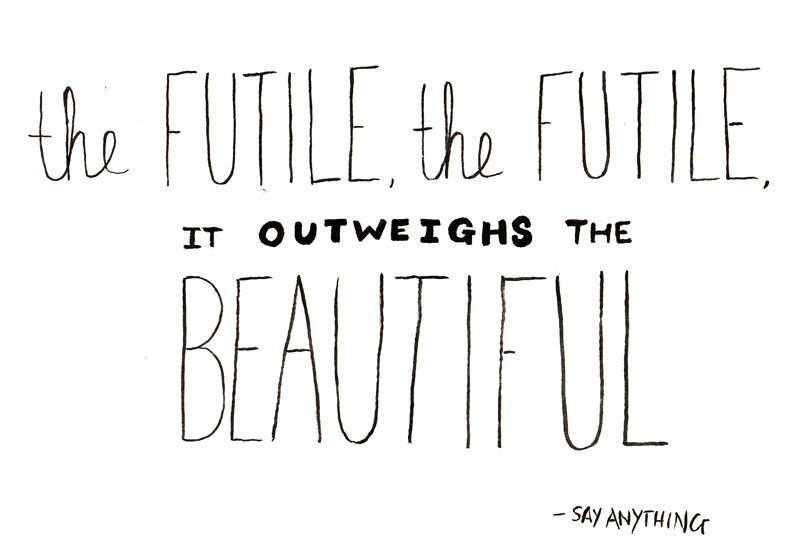 the FUTILE, the FUTILE,
IT OUTWEIGHS THE
BEAUTIFUL
- SAY ANYTHING